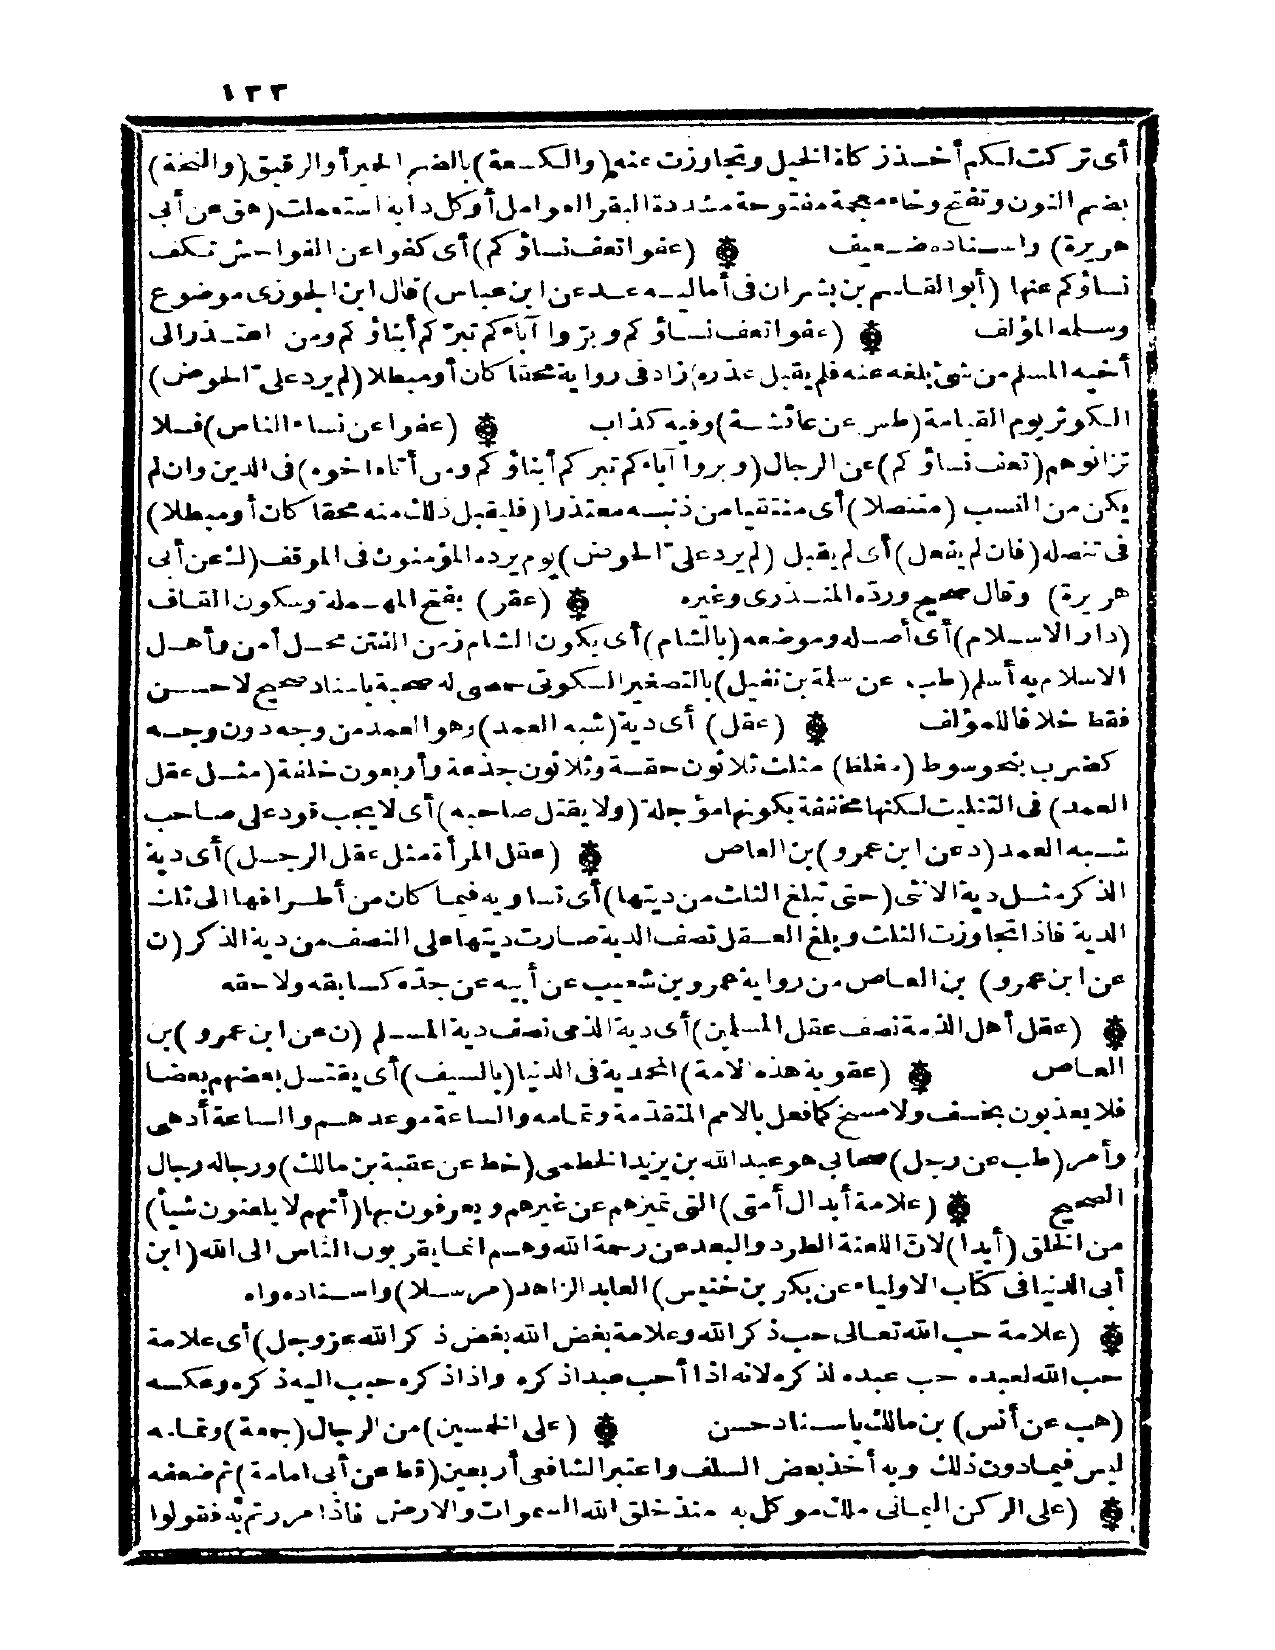 ١٣٣
أى تركت لكم أخذ زكاة الخيل وتجاوزت عنه (والكسعة) بالضم الحمير أو الرقيق (والنخة)
بضم النون وتفتح وخاء معجمة مفتوحة مشددة البقر العوامل أو كل دابة استعملت (هق عن أبى
هريرة) واسناده ضعيف (عفوا تعف نساؤكم) أى كفوا عن الفواحش تكف
نساؤكم عنها (أبو القاسم بن بشران فى أماليه عد عن ابن عباس) قال ابن الجوزى موضوع
وسلمه المؤلف (عفوا تعف نساؤكم وبرّوا آباءكم تبرّكم أبناؤكم ومن اعتذر الى
أخيه المسلم من شئ بلغه عنه فلم يقبل عذره) زاد فى رواية محقا كان أو مبطلا (لم يرد علىّ الحوض)
الكوثر يوم القيامة (طس عن عائشة) وفيه كذاب (عفوا عن نساء الناس) فلا
تزانوهم (تعف نساؤكم) عن الرجال (وبروا آباءكم تبركم أبناؤكم ومن أتاه أخوه) فى الدين وان لم
يكن من النسب (متنصلا) أى منتقيا من ذنبه معتذرا (فليقبل ذلك منه محقا كان أو مبطلا)
فى تنصله (فان لم يفعل) أى لم يقبل (لم يرد علىّ الحوض) يوم يرده المؤمنون فى الموقف (ك عن أبى
هريرة) وقال صحيح وردّه المنذرى وغيره (عقر) بفتح المهملة وسكون القاف
(دار الاسلام) أى أصله وموضعه (بالشام) أى يكون الشام زمن الفتن محل أمن وأهل
الاسلام به أسلم (طب عن سلمة بن نفيل) بالتصغير السكونى حمصى له صحبة باسناد صحيح لا حسن
فقط خلافا للمؤلف (عقل) أى دية (شبه العمد) وهو العمد من وجه دون وجه
كضرب بنحو سوط (مغلظ) مثلث ثلاثون حقة وثلاثون جذعة وأربعون خلفة (مثل عقل
العمد) فى التثليث لكنها مخففة بكونها مؤجلة (ولا يقتل صاحبه) أى لا يجب قود على صاحب
شبه العمد (د عن ابن عمرو) بن العاص (عقل المرأة مثل عقل الرجل) أى دية
الذكر مثل دية الانثى (حتى تبلغ الثلث من ديتها) أى تساويه فيما كان من أطرافها الى ثلث
الدية فاذا تجاوزت الثلث وبلغ العقل نصف الدية صارت ديتها على النصف من دية الذكر (ن
عن ابن عمرو) بن العاص من رواية عمرو بن شعيب عن أبيه عن جدّه كسابقه ولاحقه
(عقل أهل الذمة نصف عقل المسلمين) أى دية الذمى نصف دية المسلم (ن عن ابن عمرو) بن
العاص (عقوبة هذه الامة) المحمدية فى الدنيا (بالسيف) أى يقتل بعضهم بعضا
فلا يعذبون بخسف ولا مسخ كما فعل بالامم المتقدّمة وتمامه والساعة موعدهم والساعة أدهى
وأمر (طب عن رجل) صحابى هو عبد الله بن يزيد الخطمى (خط عن عقبة بن مالك) ورجاله رجال
الصحيح (علامة أبدال أمتى) التى تميزهم عن غيرهم ويعرفون بها (أنهم لا يلعنون شيأ)
من الخلق (أبدا) لانّ اللعنة الطرد والبعد عن رحمة الله وهم انما يقربون الناس الى الله (ابن
أبى الدنيا فى كتاب الاولياء عن بكر بن خنيس) العابد الزاهد (مرسلا) واسناده واه
(علامة حب الله تعالى حب ذكر الله وعلامة بغض الله بغض ذكر الله عز وجل) أى علامة
حب الله لعبده حب عبده لذكره لانه اذا أحب عبدا ذكره واذا ذكره حبب اليه ذكره وعكسه
(هب عن أنس) بن مالك باسناد حسن (على الخمسين) من الرجال (جمعة) وتمامه
ليس فيما دون ذلك وبه أخذ بعض السلف واعتبر الشافعى أربعين (قط عن أبى امامة) ثم ضعفه
(على الركن اليمانى ملك موكل به منذ خلق الله السموات والارض فاذا مررتم به فقولوا